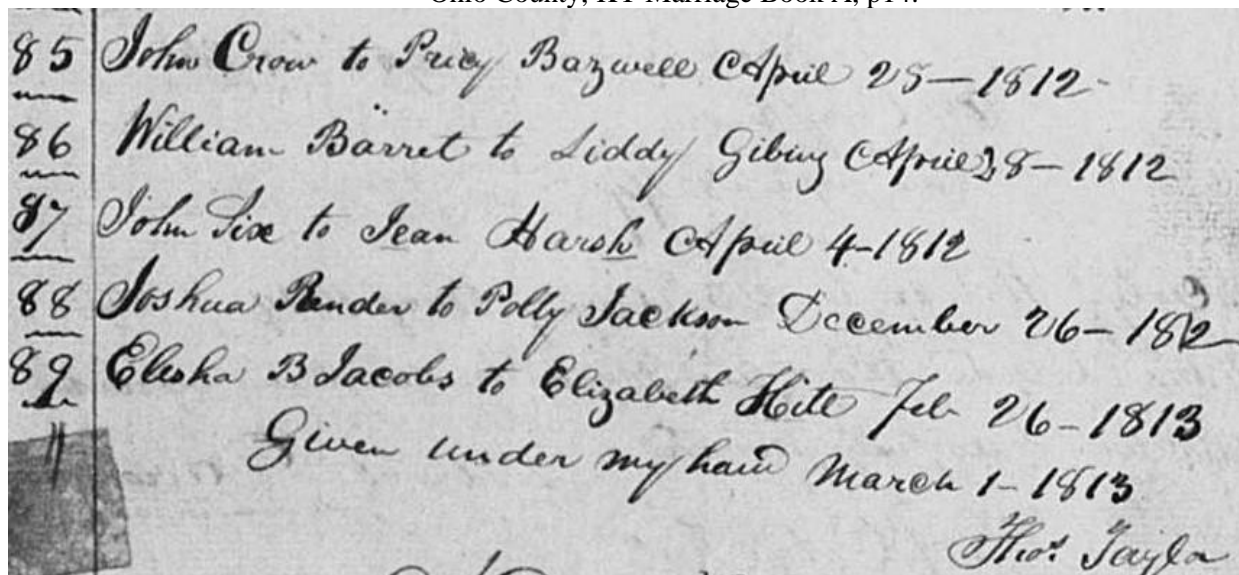 Ohio County, KY Marriage Book A, p14.
85 John Crow to Pricy Bazwell April 25 — 1812 -
86 William Barret to Liddy Gibins April 28 - 1812
87 John Sixe to Jean Harsh April 4 - 1812
88 Joshua Render to Polly Jackson December 26 - 1812
89 Elesha B Jacobs to Elizabeth Hite Feb 26 - 1813
Given under my hand March 1 - 1813
Thos Taylor